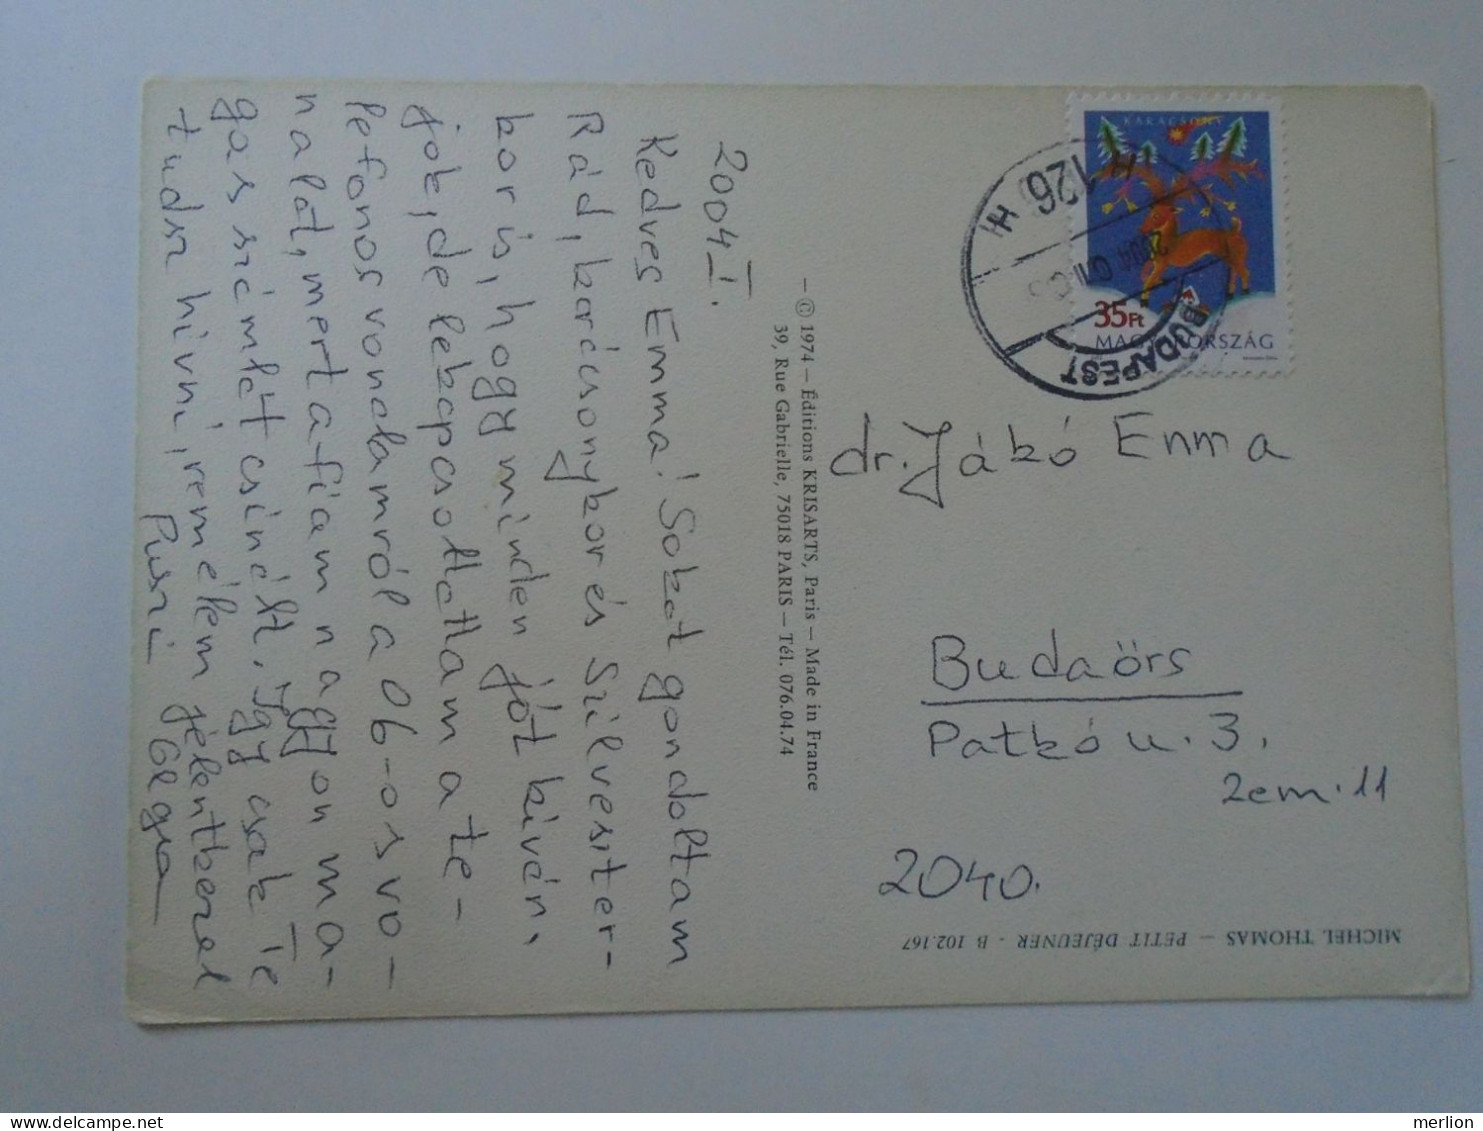 2004 I.
Kedves Emma! Sokat gondoltam
Rád, karácsonykor és Szilveszter-
kor is, hogy minden jót kíván.
jok, de lekapcsoltattam a te-
lefonos vonalamról a 06-os vo-
nalat, mert a fiam nagyon ma-
gas számlát csinált. Így csak Te
tudsz hívni, remélem jelentkezel
Puszi Olga
– © 1974 – Éditions KRISARTS, Paris – Made in France
39, Rue Gabrielle, 75018 PARIS – Tél. 076.04.74
KARÁCSONY
35Ft
MAGYARORSZÁG
BUDAPEST
126
dr. Jákó Emma
Budaörs
Patkó u. 3.
2em. 11
2040.
MICHEL THOMAS – PETIT DÉJEUNER - B 102.167
merlion